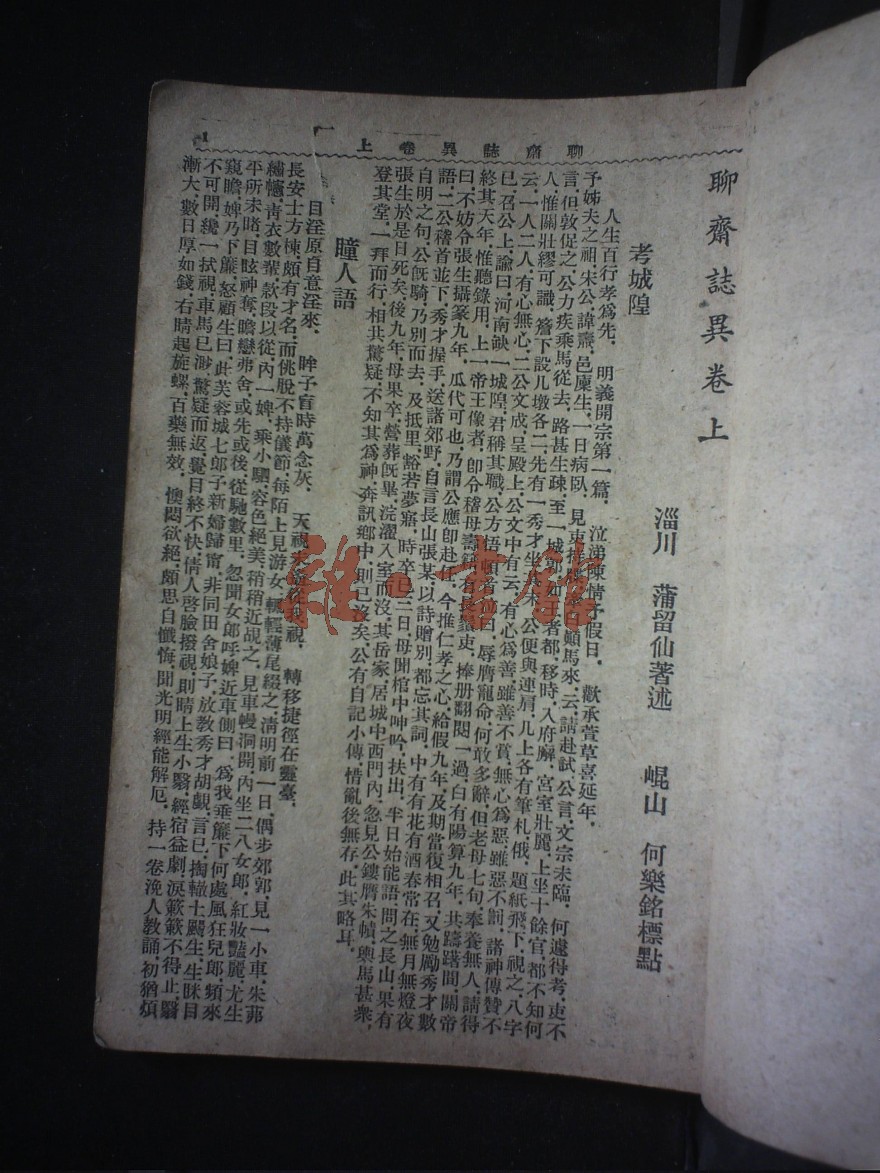 聊齋誌異卷上
1
聊齋誌異卷上
淄川　蒲留仙著述　崐山　何樂銘標點
考城隍
人生百行孝為先．明義開宗第一篇．泣涕陳情予假日．歡承萱草喜延年．
予姊夫之祖．宋公．諱燾．邑廩生．一日病臥．見吏持牒．牽白顛馬來．云．請赴試．公言．文宗未臨．何遽得考．吏不
言．但敦促之．公力疾乘馬從去．路甚生疎．至一城郭．如王者都．移時．入府廨．宮室壯麗．上坐十餘官．都不知何
人．惟關壯繆可識．簷下設几墩各二．先有一秀才坐其末．公便與連肩．几上各有筆札．俄．題紙飛下．視之．八字
云．一人二人．有心無心．二公文成．呈殿上．公文中有云．有心為善．雖善不賞．無心為惡．雖惡不罰．諸神傳贊不
已．召公上諭曰．河南缺一城隍．君稱其職．公方悟．頓首泣曰．辱膺寵命．何敢多辭．但老母七旬．奉養無人．請得
終其天年．惟聽錄用．上一帝王像者．即令稽母壽籍．有長鬚吏．捧册翻閱一過．白有陽算九年．共躊躇間．關帝
曰．不妨令張生攝篆九年．瓜代可也．乃謂公應即赴任．今推仁孝之心．給假九年．及期當復相召．又勉勵秀才數
語．二公稽首並下．秀才握手．送諸郊野．自言長山張某．以詩贈別．都忘其詞．中有有花有酒春常在．無月無燈夜
自明之句．公既騎．乃別而去．及抵里．豁若夢寤．時卒已三日．母聞棺中呻吟．扶出．半日始能語．問之長山．果有
張生於是日死矣．後九年．母果卒．營葬既畢．浣濯入室而沒．其岳家居城中西門內．忽見公鏤膺朱幩．輿馬甚衆．
登其堂．一拜而行．相共驚疑．不知其為神．奔訊鄉中．則已沒矣．公有自記小傳．惜亂後無存．此其略耳．
瞳人語
目淫原自意淫來．眸子盲時萬念灰．天視未遠從我視．轉移捷徑在靈臺．
長安士方棟．頗有才名．而佻脫不持儀節．每陌上見游女．輒輕薄尾綴之．清明前一日．偶步郊郭．見一小車．朱茀
繡幰．青衣數輩．款段以從．內一婢．乘小駟．容色絕美．稍稍近覘之．見車幔洞開．內坐二八女郎．紅妝豔麗．尤生
平所未睹．目眩神奪．瞻戀弗舍．或先或後．從馳數里．忽聞女郎呼婢近車側曰．為我垂簾下．何處風狂兒郎．頻來
窺瞻．婢乃下簾．怒顧生曰．此芙蓉城七郎子新婦歸甯．非同田舍娘子．放教秀才胡覷．言已．掬轍土颺生．生眯目
不可開．纔一拭視．車馬已渺．驚疑而返．覺目終不快．倩人啟臉撥視．則睛上生小翳．經宿益劇．淚簌簌不得止．翳
漸大．數日厚如錢．右睛起旋螺．百藥無效．懊悶欲絕．頗思自懺悔．聞光明經能解厄．持一卷浼人教誦．初猶煩
雜·書館